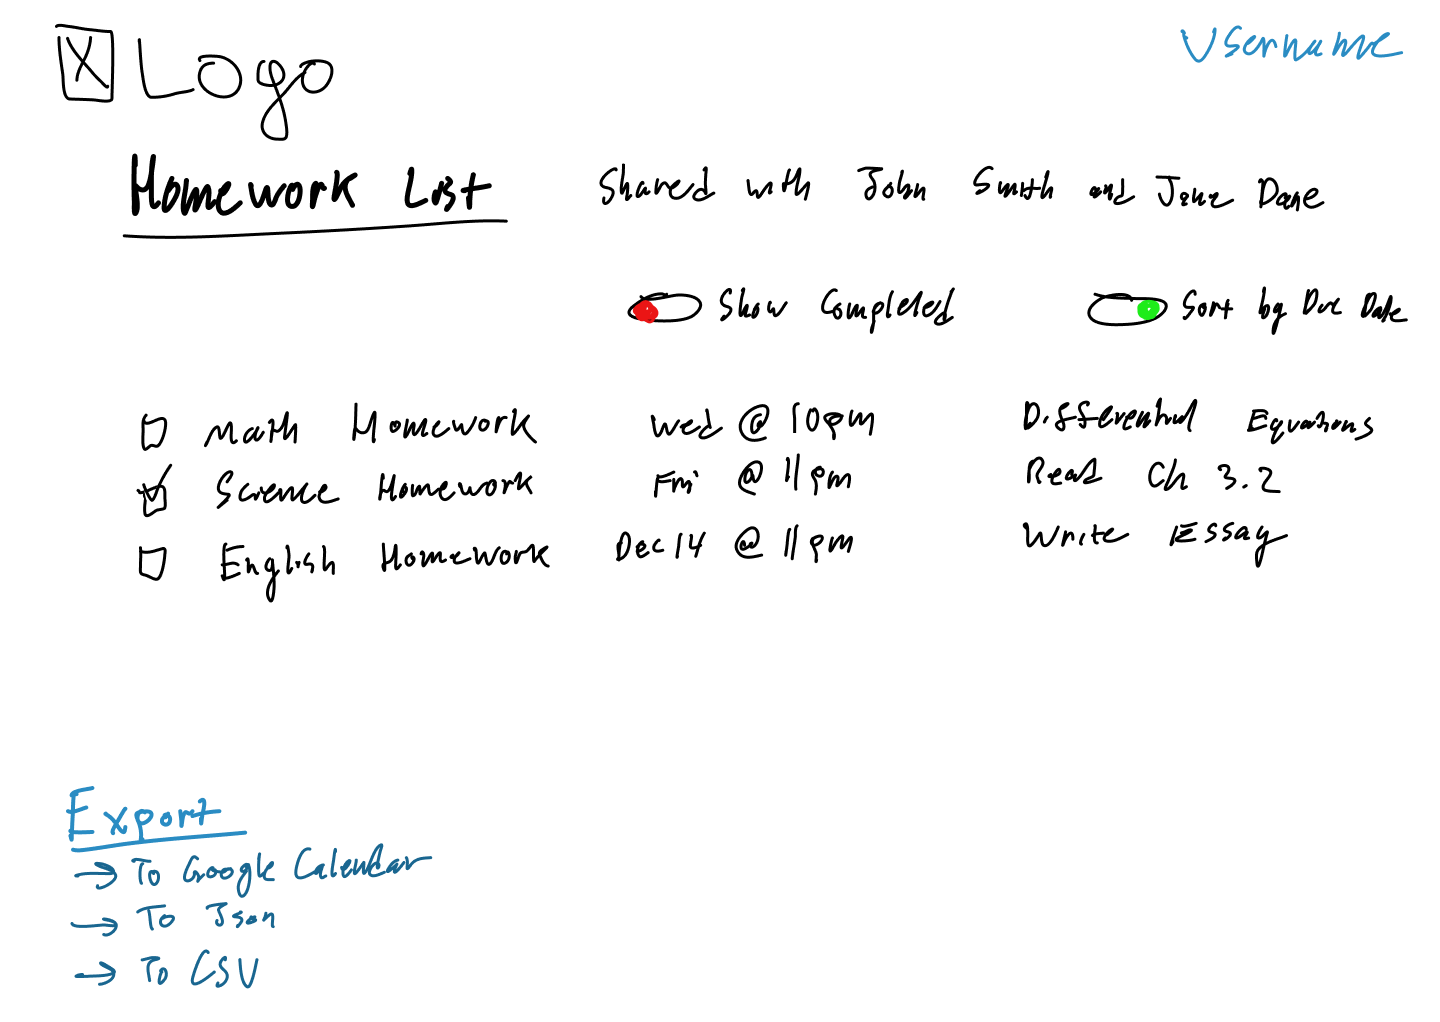 X Logo
Username
Homework List
Shared with John Smith and Jane Dane
Show Completed
Sort by Due Date
Math Homework Wed @ 10pm Differential Equations
Science Homework Fri @ 11pm Read Ch 3.2
English Homework Dec 14 @ 11pm Write Essay
Export
→ To Google Calendar
→ To Json
→ To CSV